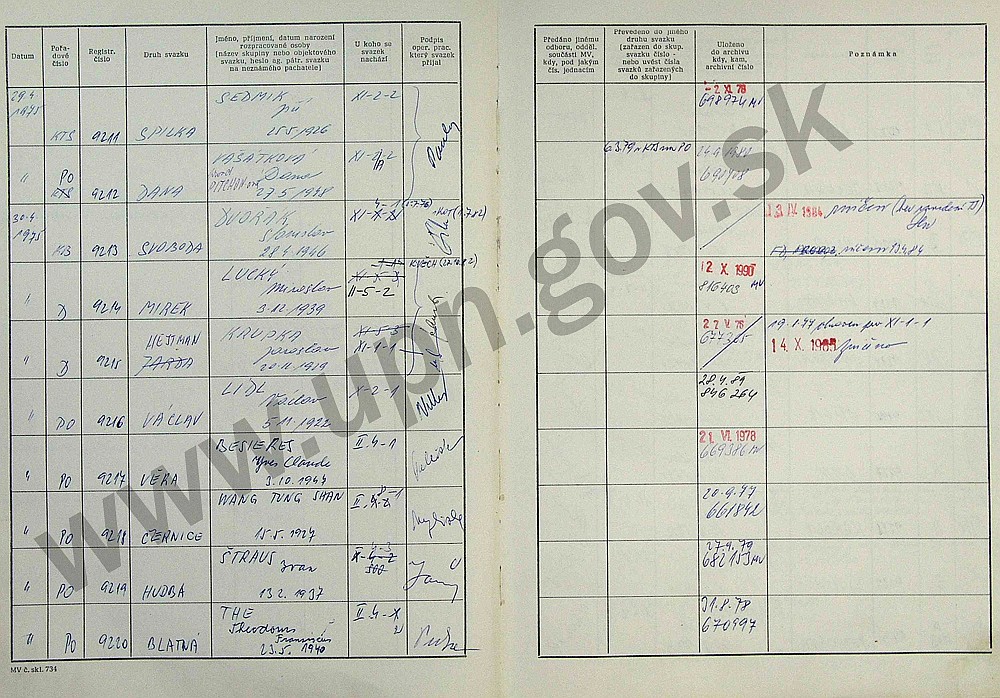 Datum
Pořa-
dové
číslo
Registr.
číslo
Druh svazku
Jméno, příjmení, datum narození
rozpracované osoby
(název skupiny nebo objektového
svazku, heslo ag. pátr. svazku
na neznámého pachatele)
U koho se
svazek
nachází
Podpis
oper. prac.
který svazek
přijal
Předáno jinému
odboru, odděl.
součásti MV,
kdy, pod jakým
čís. jednacím
Převedeno do jiného
druhu svazku
(zařazen do skup.
svazku číslo -
nebo uvést čísla
svazků zařazených
do skupiny)
Uloženo
do archivu
kdy, kam,
archivní číslo
Poznámka
29.4.
1975
KTS 9211 SPILKA
SEDMÍK
Jiří
25.5.1926
XI-2-2
Pauly
- 2. XI. 78
698974 MV
" PO
KTS 9212 DANA
VAŠÁTKOVÁ
Dana
27.5.1948
6.3.79 v KTS na PO
30.4.
1975
KTS 9213 SVOBODA
DVOŘÁK
Stanislav
28.4.1946
13. IV. 1984
" D 9214 MIREK
LUCKÝ
Miroslav
3.12.1939
XI-5-3
II-5-2
12 X. 1990
816403 MV
" D 9215 HEJTMAN
JARDA
KRUPKA
Jaroslav
20.11.1919
XI-5-3
XI-1-1
677365
19.1.77 obnoven pro XI-1-1
14. X. 1985
" PO 9216 VÁCLAV
LIDL
Václav
5.11.1922
X-2-1
28.4.89
846264
" PO 9217 VĚRA
BESIERES
Yves Claude
3.10.1944
II.4-1
21. VI. 1978
669386 MV
" PO 9218 ČERNICE
WANG TUNG SHAN
15.5.1927
20-9.77
661842
" PO 9219 HUDBA
ŠTRAUS
Ivan
13.2.1937
X-4-2
27.9.79
682153 MV
" PO 9220 BLATNÁ
THE
Theodorus
Franciscus
23.5.1940
II.4-X
31.8.78
670997
MV č. skl. 734
www.upn.gov.sk